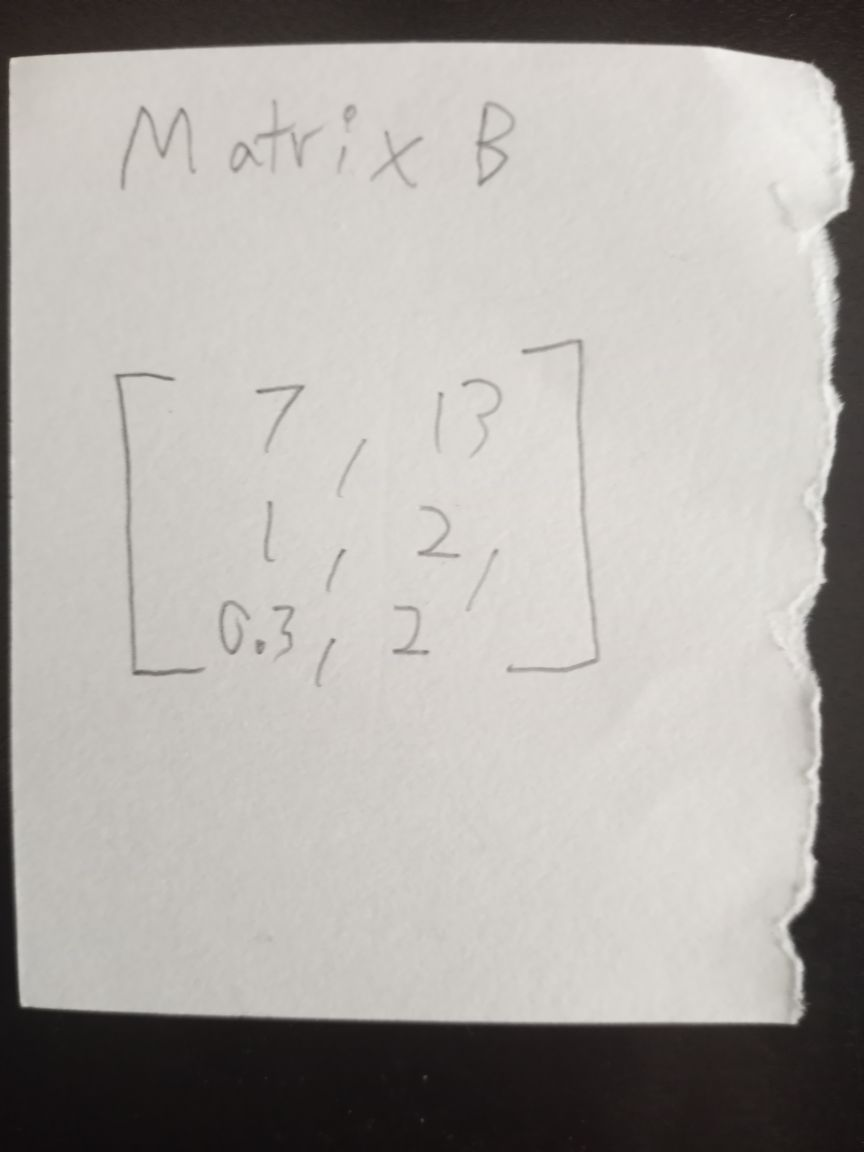 Matrix B
7, 13
1, 2,
0.3, 2